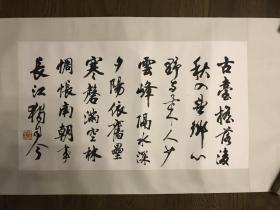 古臺摇落後
秋入望鄉心
野寺來人少
雲峰隔水深
夕陽依舊壘
寒磬滿空林
惆悵南朝事
長江獨至今